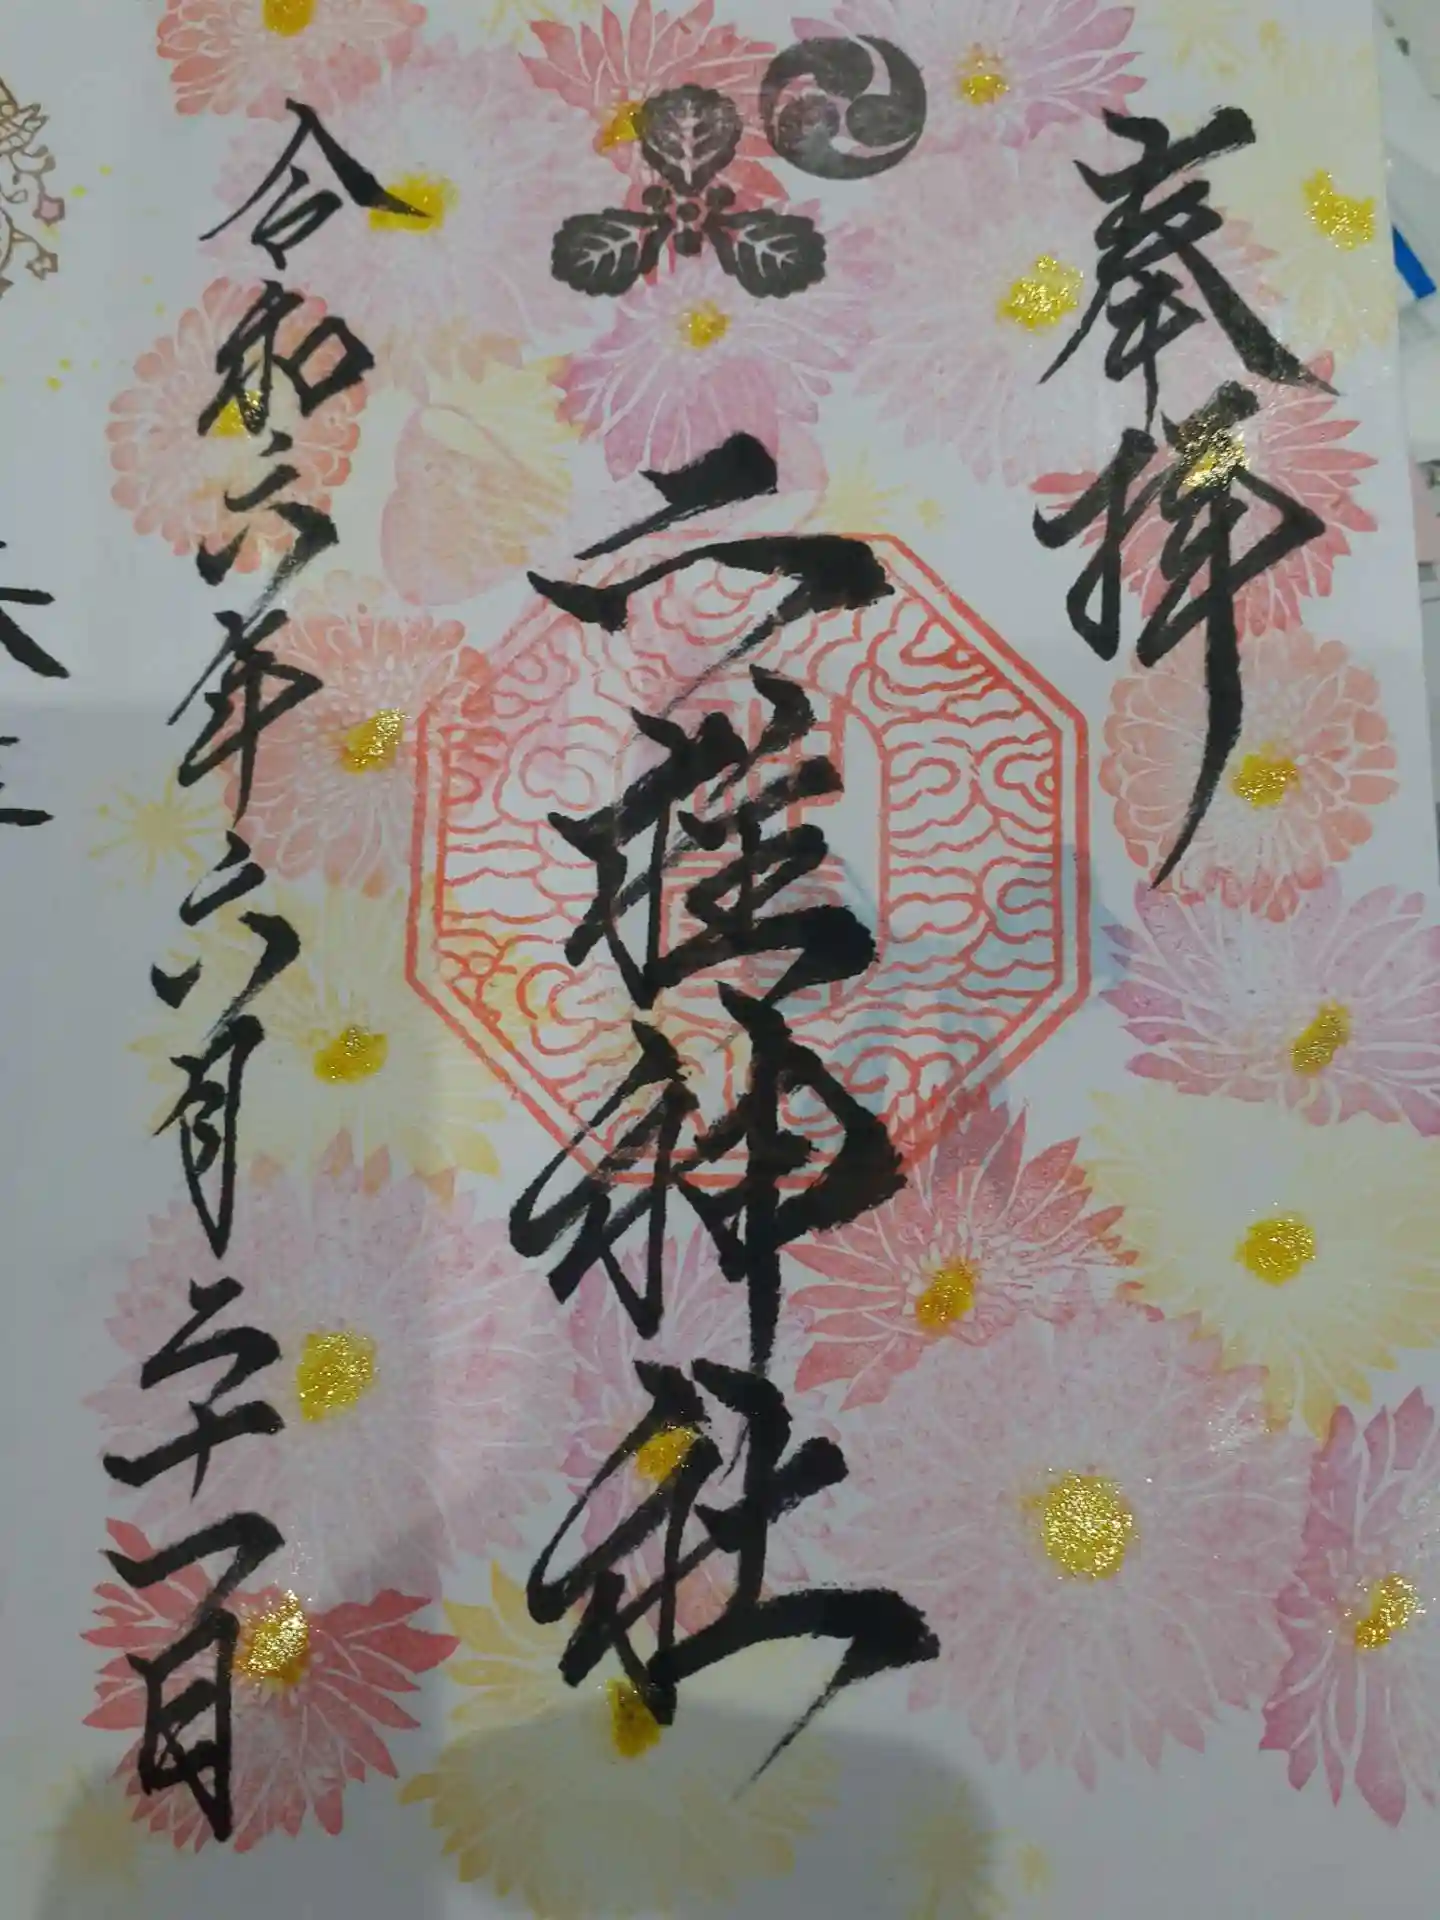 奉拝
二柱神社
令和六年六月二十一日